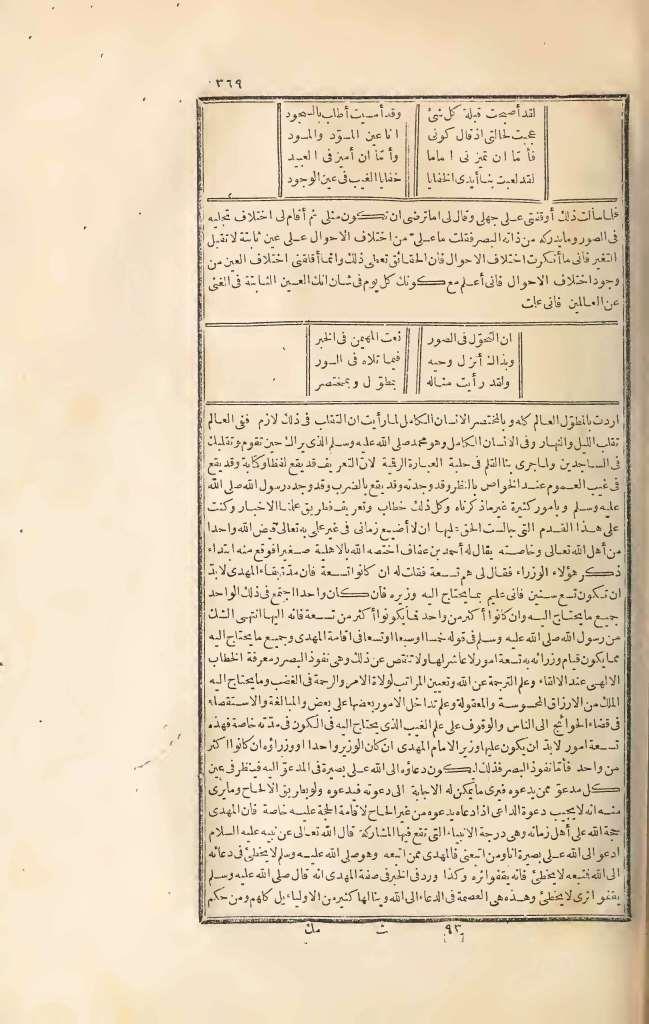 ٣٦٩
لقد أصبحت قبلة كل شئ وقد أمسيت أطلب بالسجود
عجبت لحالتي اذ قال كوني انا عين المسود والمسود
فأما ان تميزني اماما وأما ان أميز في العبيد
لقد لعبت بنا أيدي الخفايا خفايا الغيب في عين الوجود
فلما سألت ذلك أوقفني على جهلي وقال لي اما ترضى ان تكون مثلي ثم أقام لي اختلاف تجليه
في الصور وما يدركه من ذاته البصر فقلت ما علي من اختلاف الاحوال على عين ثابتة لا تقبل
التغير فاني ما أنكرت اختلاف الاحوال فان الحقائق تعطي ذلك وانما أقلقني اختلاف العين من
وجود اختلاف الاحوال فاني أعلم مع كونك كل يوم في شان انك العين الثابتة في الغنى
عن العالمين فاني علمت
ان التحول في الصور نعت المهيمن في الخبر
وبذاك أنزل وحيه فيما تلاه في السور
ولقد رأيت مثاله بمطول وبمختصر
اردت بالمطول العالم كله وبالمختصر الانسان الكامل لما رأيت ان التقلب في ذلك لازم ففي العالم
تقلب الليل والنهار وفي الانسان الكامل وهو محمد صلى الله عليه وسلم الذي يراك حين تقوم وتقلبك
في الساجدين ولما جرى بنا القلم في حلبة العبارة الرقمية لان التعريف قد يقع لفظا وكتابة وقد يقع
في غيب العموم عند الخواص بالنظر وقد وجدته وقد يقع بالضرب وقد وجده رسول الله صلى الله
عليه وسلم وبأمور كثيرة غير ما ذكرناه وكل ذلك خطاب وتعريف فطريق علمنا الاخبار وكنت
على هذا القدم التي جالست الحق عليها ان لا أضيع زماني في غير علمي به تعالى قيض الله واحدا
من أهل الله تعالى وخاصته يقال له أحمد بن عقاب اختصه الله بالاهلية صغيرا فوقع منه ابتداء
ذكر هؤلاء الوزراء فقال لي هم تسعة فقلت له ان كانوا تسعة فان مدة بقاء المهدي لا بد
ان تكون تسع سنين فاني عليم بما يحتاج اليه وزيره فان كان واحدا اجتمع في ذلك الواحد
جميع ما يحتاج اليه وان كانوا أكثر من واحد فما يكونوا أكثر من تسعة فانه اليها انتهى الشك
من رسول الله صلى الله عليه وسلم في قوله خمسا او سبعا او تسعا في اقامة المهدي وجميع ما يحتاج اليه
مما يكون قيام وزرائه به تسعة امور لا عاشر لها ولا تنقص عن ذلك وهي نفوذ البصر ومعرفة الخطاب
الالهي عند الالقاء وعلم الترجمة عن الله وتعيين المراتب لولاة الامر والرحمة في الغضب وما يحتاج اليه
الملك من الارزاق المحسوسة والمعقولة وعلم تداخل الامور بعضها على بعض والمبالغة والاستقصاء
في قضاء الحوائج الى الناس والوقوف على علم الغيب الذي يحتاج اليه في الكون في مدته خاصة فهذه
تسعة امور لا بد ان يكون عليها وزير الامام المهدي ان كان الوزير واحدا او وزراؤه ان كانوا أكثر
من واحد فأما نفوذ البصر فذلك ليكون دعاؤه الى الله على بصيرة في المدعو اليه فينظر في عين
كل مدعو ممن يدعوه فيرى ما يمكن له الاجابة الى دعوته فيدعوه ولو بطريق الالحاح وما يرى
منه انه لا يجيب دعوة الداعي اذا دعاه يدعوه من غير الحاح لاقامة الحجة عليه خاصة فان المهدي
حجة الله على أهل زمانه وهي درجة الانبياء التي تقع فيها المشاركة قال الله تعالى عن نبيه عليه السلام
ادعو الى الله على بصيرة انا ومن اتبعني فالمهدي ممن اتبعه وهو صلى الله عليه وسلم لا يخطئ في دعائه
الى الله فمتبعه لا يخطئ فانه يقفو اثره وكذا ورد في الخبر في صفة المهدي انه قال صلى الله عليه وسلم
يقفو اثري لا يخطئ وهذه هي العصمة في الدعاء الى الله وينالها كثير من الاولياء بل كلهم ومن حكم
٩٣ ث مك